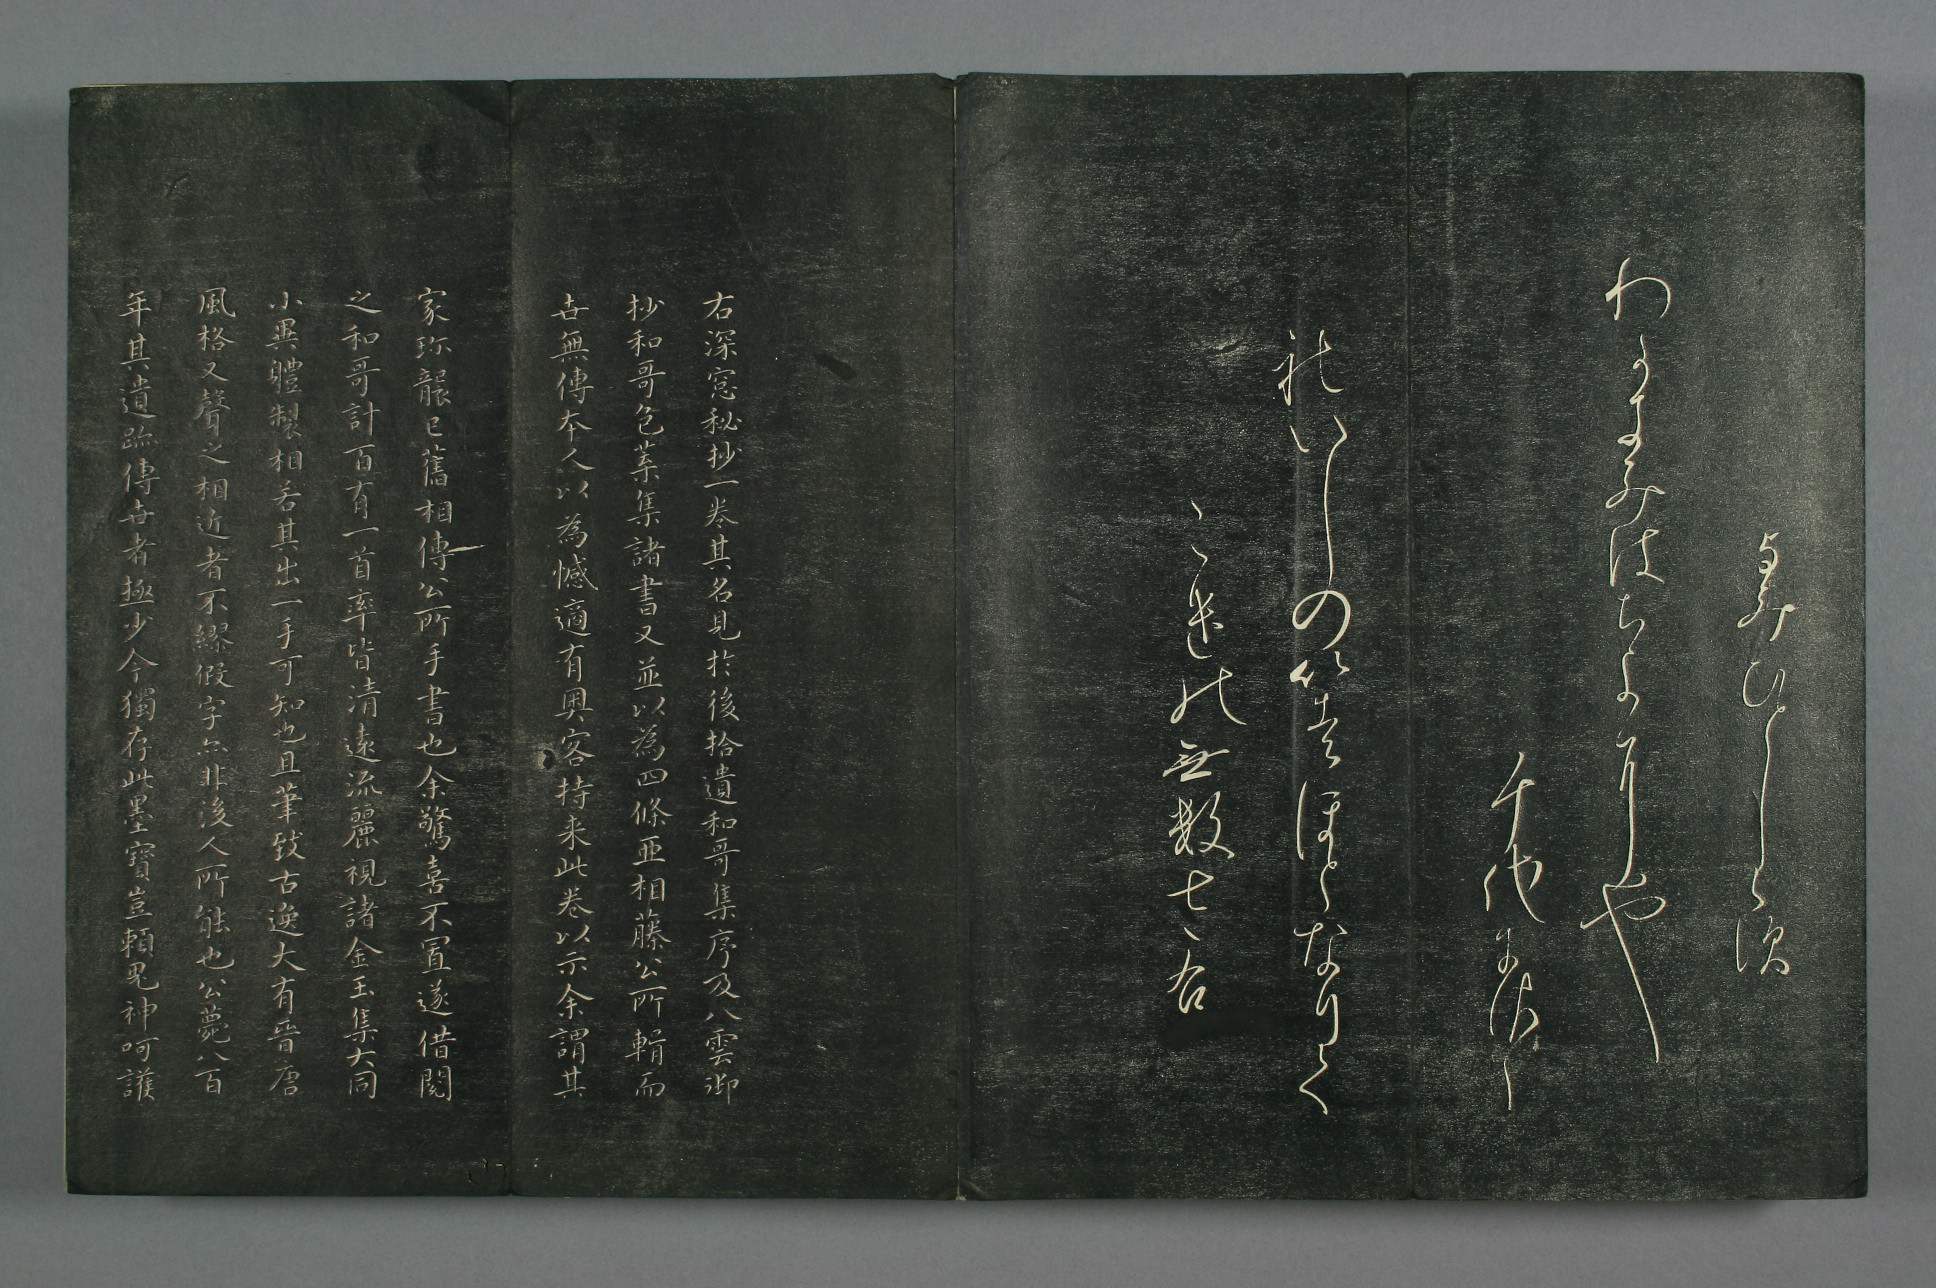 よみひとしらす
わかきみはちよにや
千代にさゝ
れいしのいはほとなりて
こけのむすまて
右深窓秘抄一巻其名見於後拾遺和哥集序及八雲御
抄和哥色葉集諸書又並以為四條亜相藤公所輯而
世無傳本人以為憾適有奥客持来此巻以示余謂其
家珎襲已舊相傳公所手書也余驚喜不置遂借閲
之和哥計百有一首率皆清遠流麗視諸金玉集大同
小異體製相若其出一手可知也且筆致古逸大有晉唐
風格又聲之相近者不繆假字亦非後人所能也公薨八百
年其遺跡傳世者極少今獨存此墨寶豈頼鬼神呵護